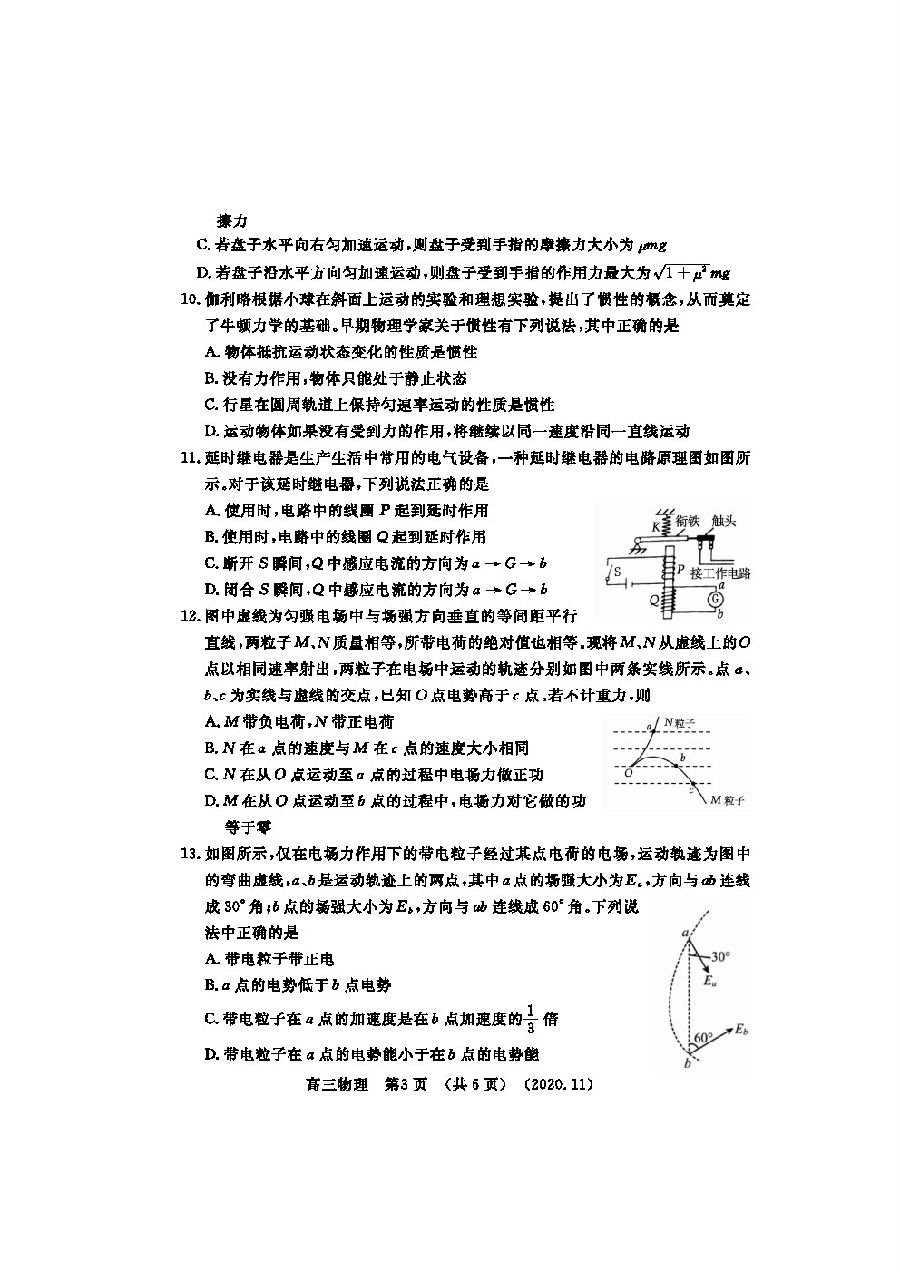 擦力
C. 若盘子水平向右匀加速运动,则盘子受到手指的摩擦力大小为 μmg
D. 若盘子沿水平方向匀加速运动,则盘子受到手指的作用力最大为√1+μ² mg
10. 伽利略根据小球在斜面上运动的实验和理想实验,提出了惯性的概念,从而奠定
了牛顿力学的基础。早期物理学家关于惯性有下列说法,其中正确的是
A. 物体抵抗运动状态变化的性质是惯性
B. 没有力作用,物体只能处于静止状态
C. 行星在圆周轨道上保持匀速率运动的性质是惯性
D. 运动物体如果没有受到力的作用,将继续以同一速度沿同一直线运动
11. 延时继电器是生产生活中常用的电气设备,一种延时继电器的电路原理图如图所
示。对于该延时继电器,下列说法正确的是
A. 使用时,电路中的线圈 P 起到延时作用
B. 使用时,电路中的线圈 Q 起到延时作用
C. 断开 S 瞬间,Q 中感应电流的方向为 a→G→b
D. 闭合 S 瞬间,Q 中感应电流的方向为 a→G→b
K 衔铁 触头
S P 接工作电路
a
Q G
b
12. 图中虚线为匀强电场中与场强方向垂直的等间距平行
直线,两粒子 M、N 质量相等,所带电荷的绝对值也相等。现将 M、N 从虚线上的O
点以相同速率射出,两粒子在电场中运动的轨迹分别如图中两条实线所示。点 a、
b、c 为实线与虚线的交点,已知 O 点电势高于 c 点。若不计重力,则
A. M 带负电荷,N 带正电荷
B. N 在 a 点的速度与 M 在 c 点的速度大小相同
C. N 在从 O 点运动至 a 点的过程中电场力做正功
D. M 在从 O 点运动至 b 点的过程中,电场力对它做的功
等于零
a N 粒子
b
O
c
M 粒子
13. 如图所示,仅在电场力作用下的带电粒子经过某点电荷的电场,运动轨迹为图中
的弯曲虚线,a、b是运动轨迹上的两点,其中 a 点的场强大小为 Eₐ,方向与 ab 连线
成 30°角;b 点的场强大小为 E_b,方向与 ab 连线成 60°角。下列说
法中正确的是
A. 带电粒子带正电
B. a 点的电势低于 b 点电势
C. 带电粒子在 a 点的加速度是在 b 点加速度的 1/3 倍
D. 带电粒子在 a 点的电势能小于在 b 点的电势能
a
30°
Eₐ
60° E_b
b
高三物理 第3页 (共6页) (2020.11)